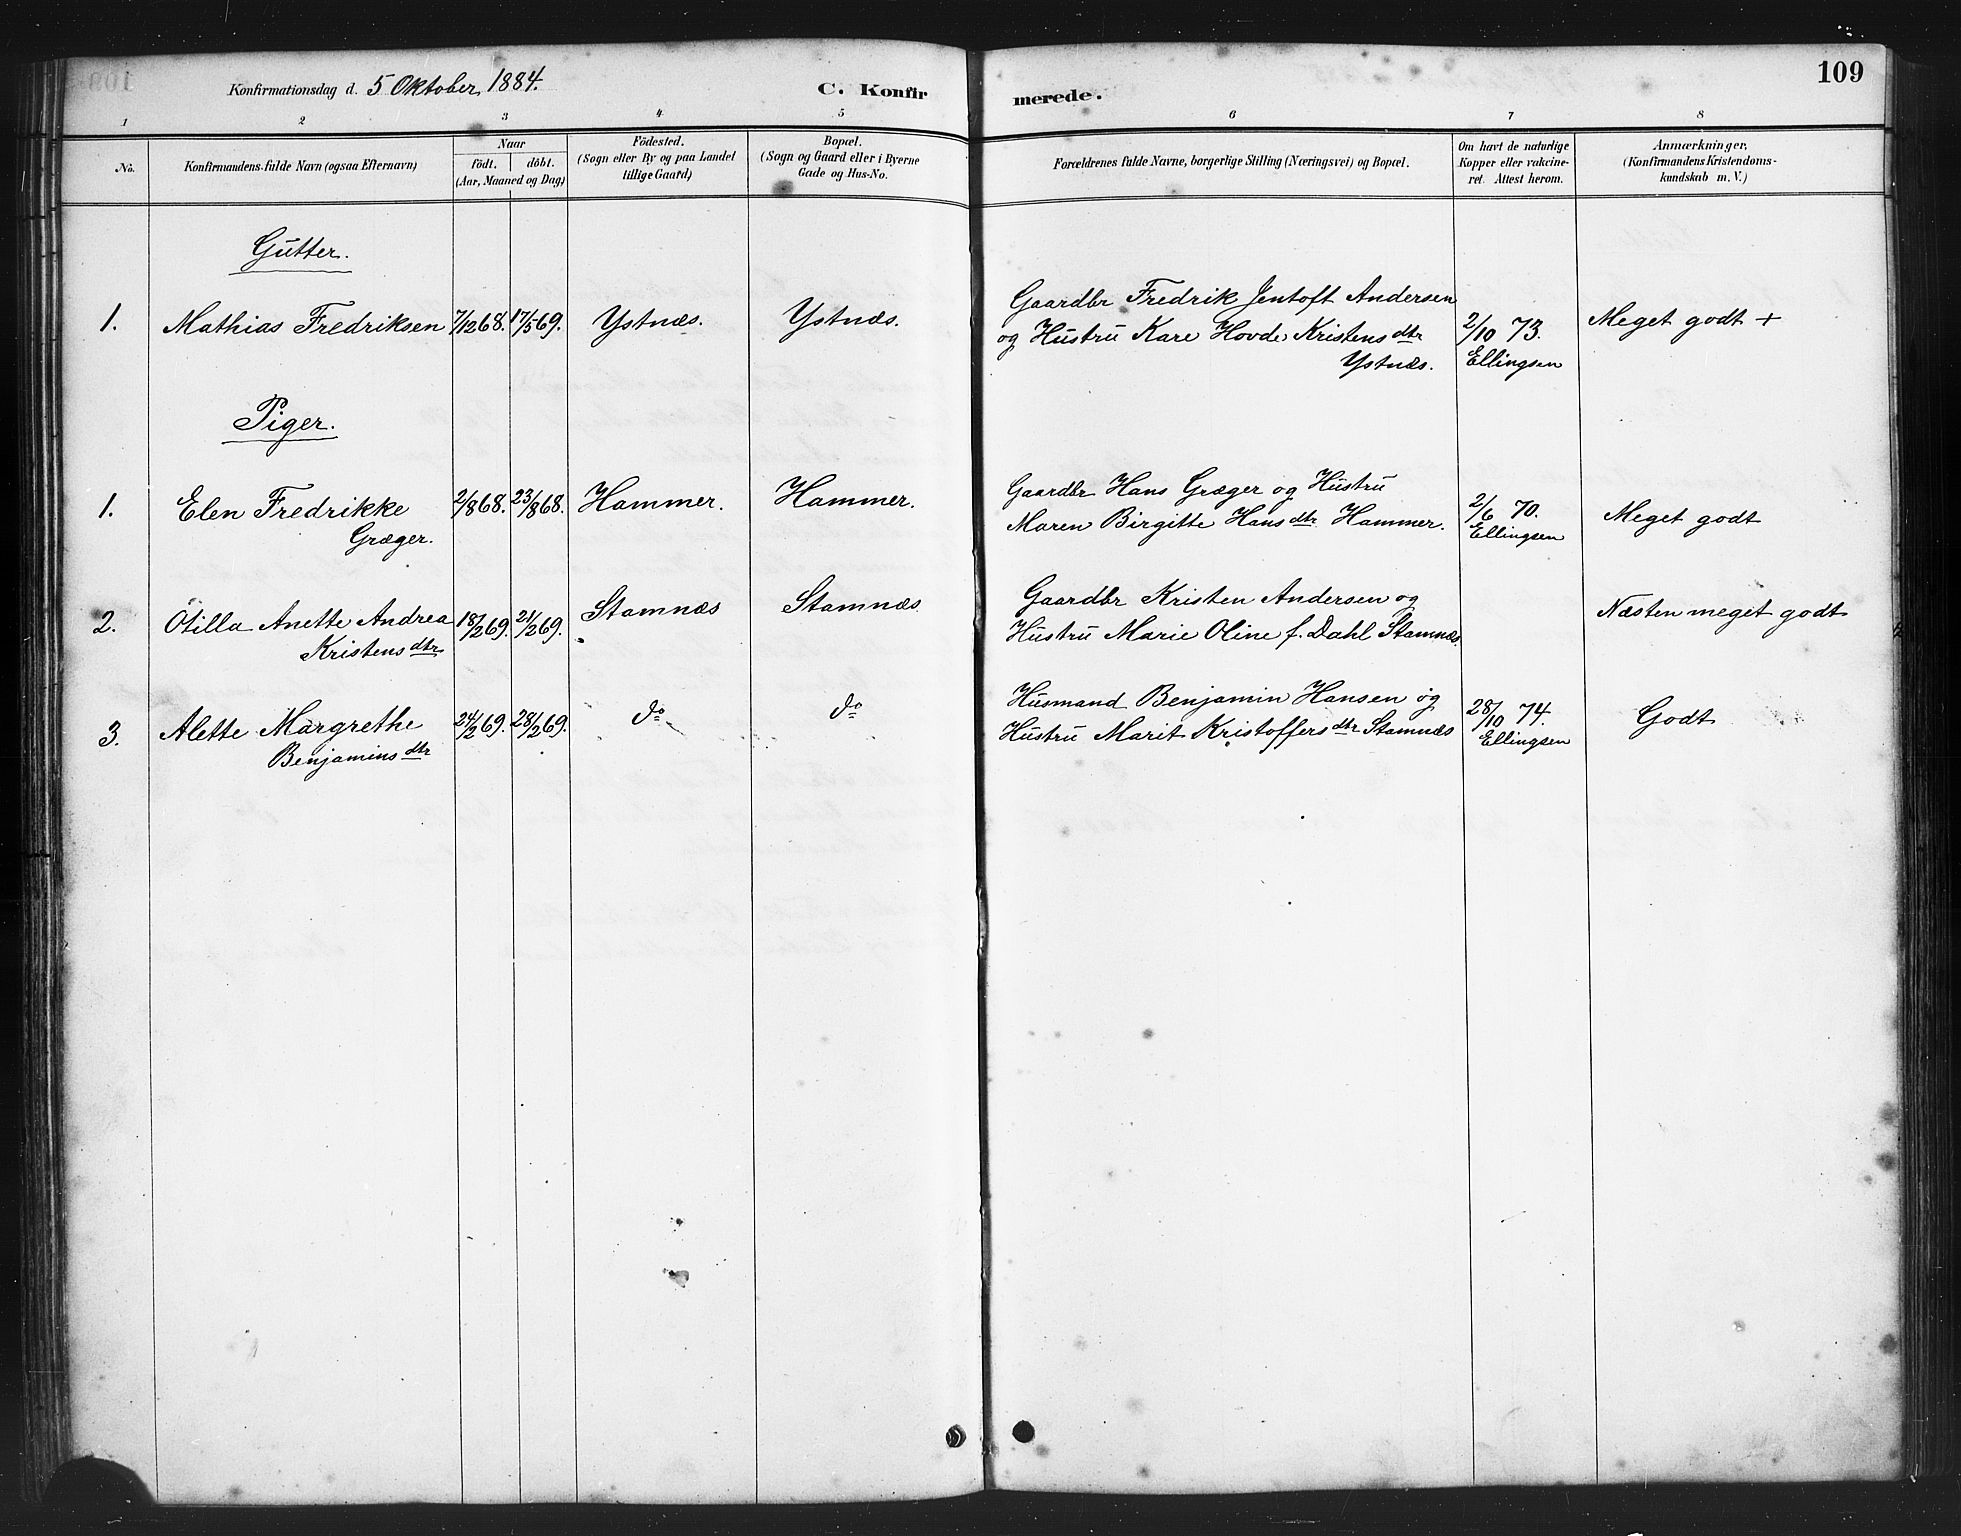 Konfirmationsdag d. 5 Oktober 1884.
C. Konfirmerede.
109
1 2 3 4 5 6 7 8
No.
Konfirmandens fulde Navn (ogsaa Efternavn)
Naar
födt. döbt.
(Aar, Maaned og Dag)
Födested.
(Sogn eller By og paa Landet
tillige Gaard)
Bopæl.
(Sogn og Gaard eller i Byerne
Gade og Hus-No.
Forældrenes fulde Navne, borgerlige Stilling (Næringsvei) og Bopæl.
Om havt de naturlige
Kopper eller vakcine-
ret. Attest herom.
Anmærkninger.
(Konfirmandens Kristendoms-
kundskab m. V.)
Gutter.
1. Mathias Fredriksen 7/12 68. 17/5 69. Ystnæs. Ystnæs.
Gaardbr Fredrik Jentoft Andersen
og Hustru Kare Hovde Kristensdtr
Ystnæs.
2/10 73.
Ellingsen
Meget godt +
Piger.
1. Elen Fredrikke
Græger.
2/8 68. 23/8 68. Hammer. Hammer.
Gaardbr Hans Græger og Hustru
Maren Birgitte Hansdtr Hammer.
2/6 70.
Ellingsen
Meget godt
2. Otilla Anette Andrea
Kristensdtr
18/2 69. 21/2 69. Stamnæs Stamnæs
Gaardbr Kristen Andersen og
Hustru Marie Oline f. Dahl Stamnæs.
Næsten meget godt
3. Alette Margrethe
Benjaminsdtr
24/2 69. 28/2 69. do do
Husmand Benjamin Hansen og
Hustru Marit Kristoffersdtr Stamnæs
28/10 74.
Ellingsen
Godt